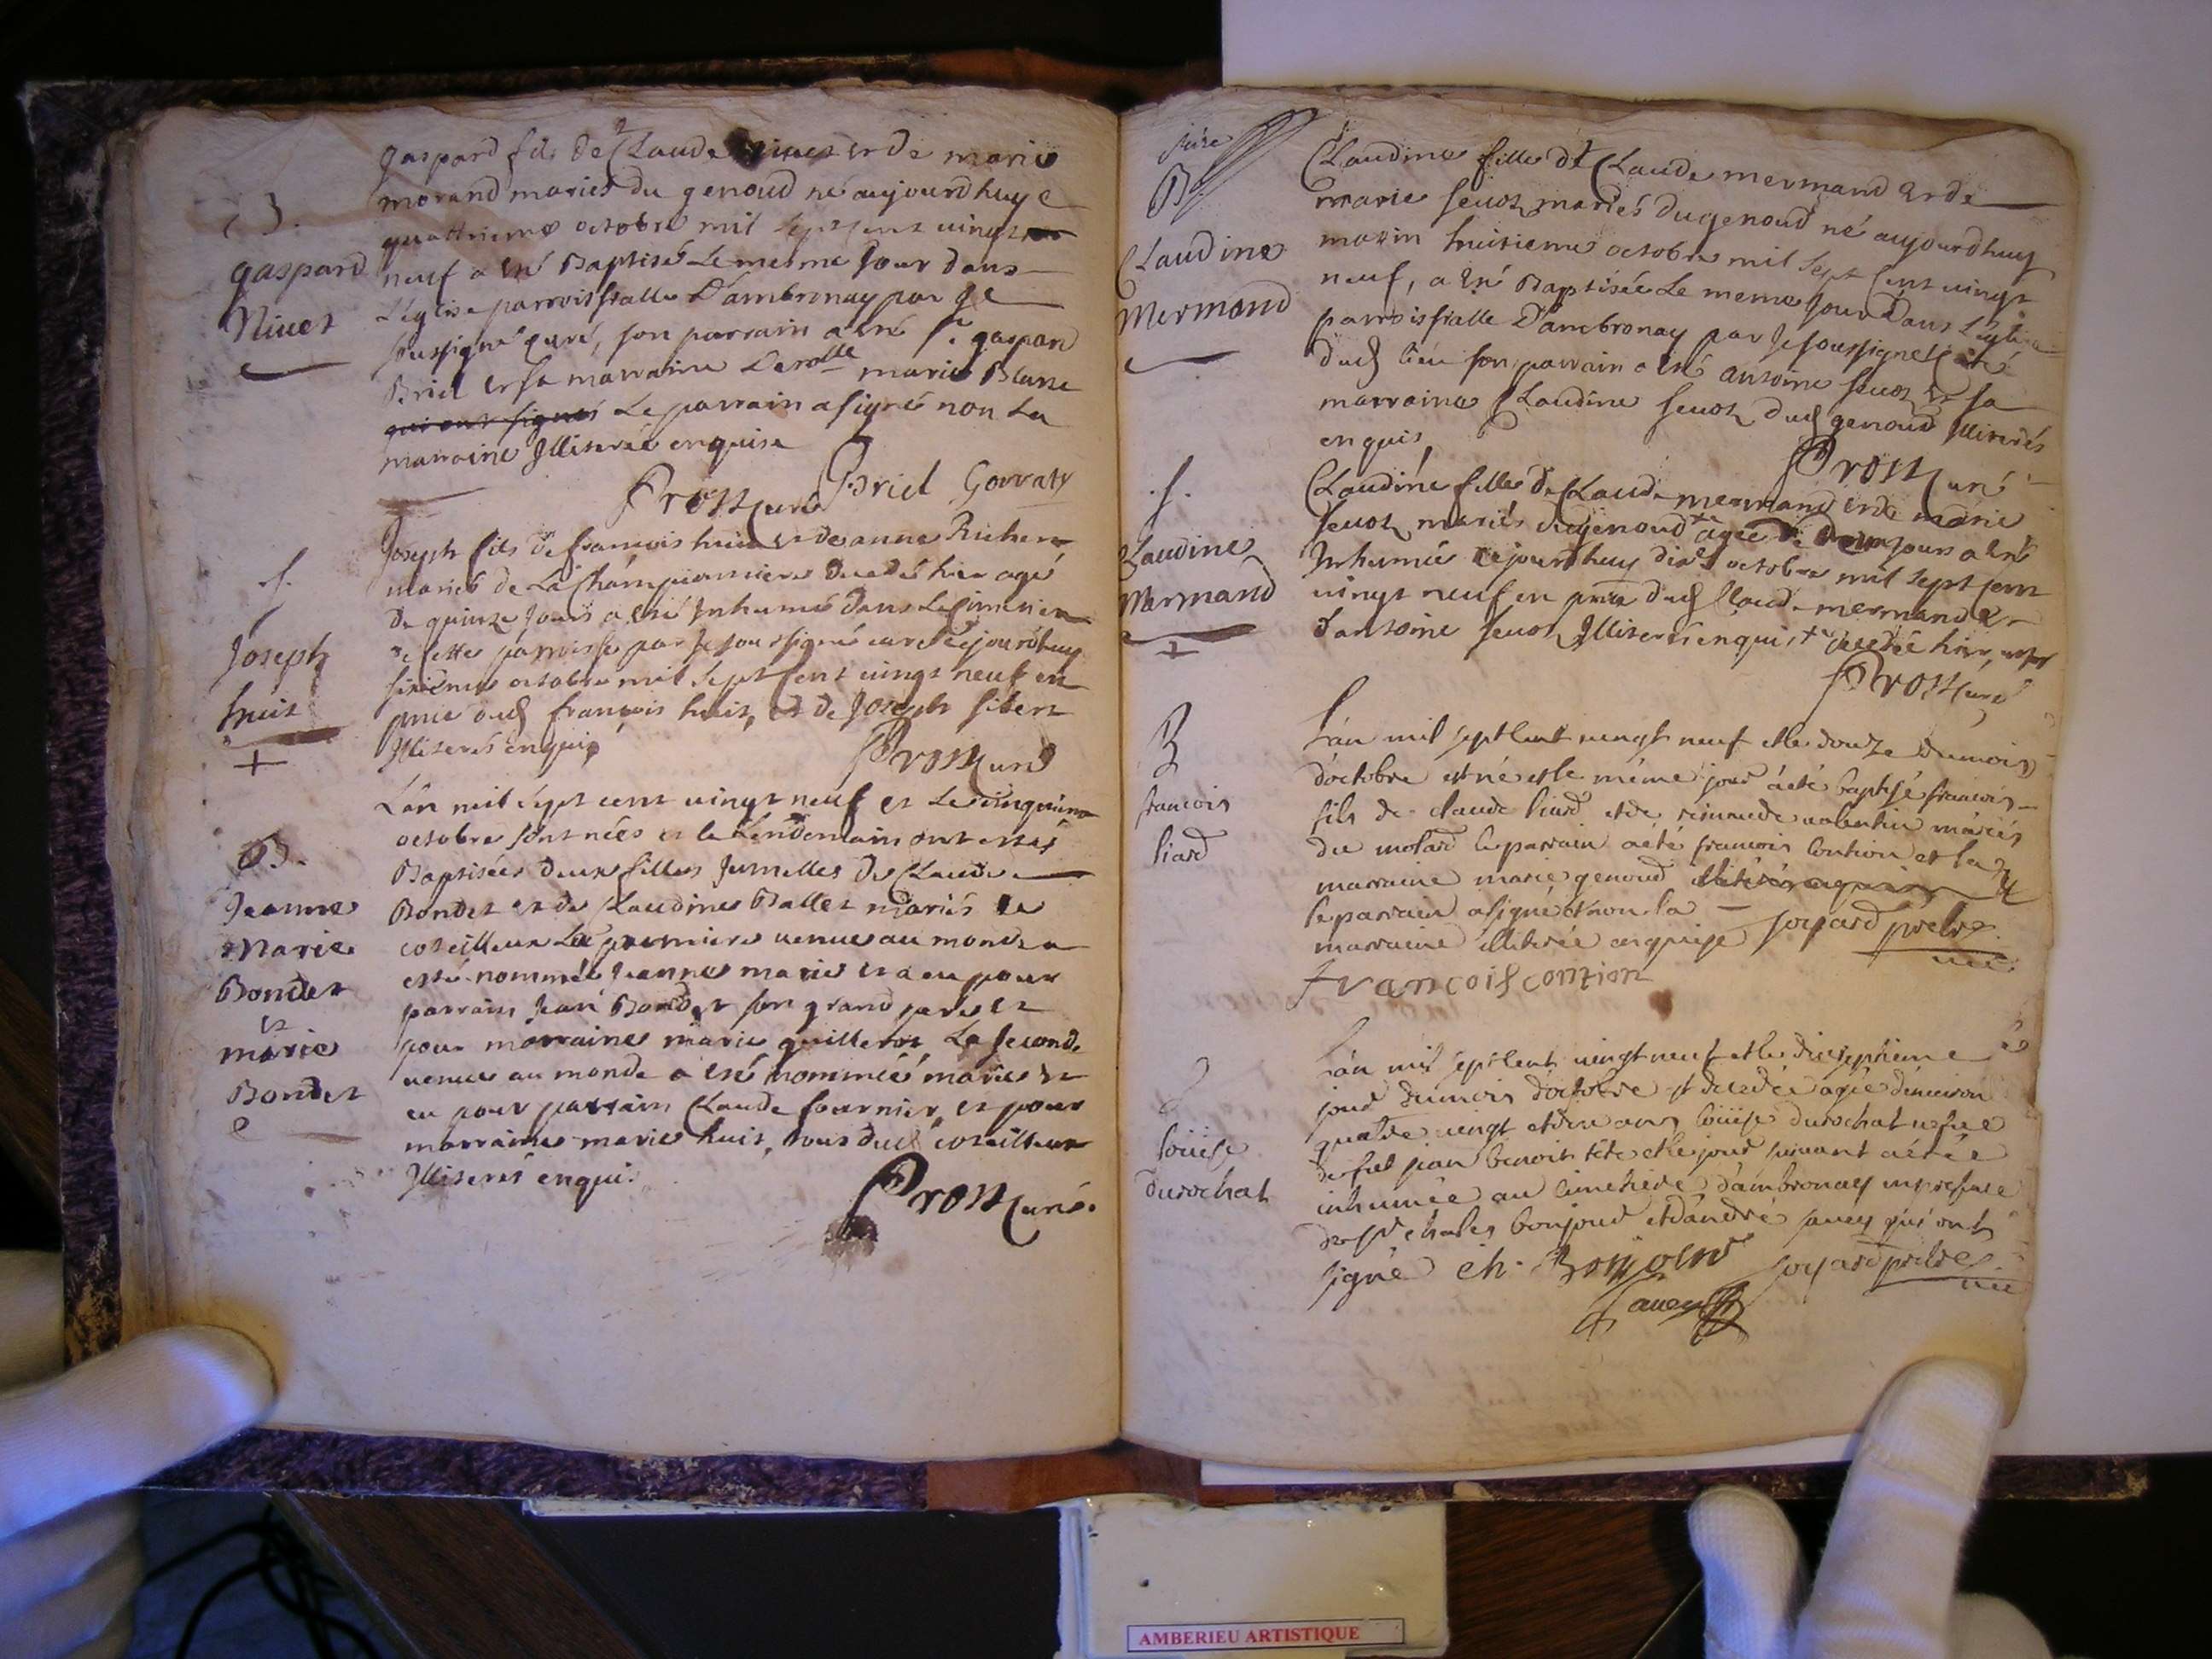 B.
gaspard
Niuet
gaspard fils de Claude Niuet et de marie
morand mariés du genoud né aujourdhuy
quattrieme octobre mil sept cent uingt
neuf a esté Baptisé Le mesme Jour dans
L'église parroissialle D'ambronay par Je
soussigné curé, son parrain a esté sr. gaspar
Briel et sa marraine Demolle marie Blanc
qui ont signés Le parrain a signé non La
marraine Illiterée enquise
Prost curé Briel Gorraty
s.
Joseph
huit
+
Joseph fils de francois huit et de anne Richer
mariés de La Championniere decedé hier agé
De quinze Jours a esté Inhumé dans Le Cimetier
de cette parroisse par Je soussigné curé cejourdhuy
sixieme octobre mil sept cent uingt neuf en
pnce dud francois huit, et de Joseph sibert
Illiterés enquis
Prost curé
B.
Jeanne
Marie
Bondet
et
marie
Bondet
L'an mil sept cent uingt neuf et Le cinquieme
octobre sont nées et le Lendemain ont estés
Baptisées deux filles Jumelles de Claude
Bondet et de Claudine Ballet mariés de
coteilleux La premiere uenue au monde a
esté nommée Jeanne marie et a eu pour
parrain Jean Bondet son grand pere et
pour marraine marie guillerot La seconde
uenue au monde a esté nommée marie et
eu pour parrain Claude fournier et pour
marraine marie huit, tous dud coteilleux
Illiterés enquis
Prost curé.
B
Claudine
Mermand
Claudine fille de Claude mermand et de
marie seuoz mariés du genoud né aujourdhuy
matin huitieme octobre mil sept cent uingt
neuf, a esté Baptisée Le meme Jour Dans L'église
parroissialle D'ambronay par Je soussigné Curé
dud lieu son parrain a esté antoine seuoz et sa
marraine Claudine seuoz dud genoud Illiterés
enquis,
Prost curé
s.
Claudine
Mermand
+
Claudine fille de Claude mermand et de marie
seuoz mariés du genoud + agée de Deux jours a esté
Inhumée cejourdhuy dix octobre mil sept cent
uingt neuf en pnce dud Claude mermand et
d'antoine seuoz Illiterés enquis + decedée hier,
Prost curé
B
francois
liard
L'an mil sept cent vingt neuf et le douze du mois
d'octobre est né et le même jour a été baptisé francois
fils de claude liard et de reimonde ualentin mariés
du molard le parrain a été francois contion et la
marraine marie genoud
le parrain a signé et non la
marraine illiterée enquise joyard pretre
francois contion
louise
durochat
L'an mil sept cent uingt neuf et le dixseptieme
jour du mois d'octobre est decedée agée d'environ
quatre vingt et deux ans louise durochat uefue
de fut jean benoit tête et le jour suiuant a été
inhumée au cimetiere d'ambronay en presence
de sr charles bonjour et d'andré sauey qui ont
signé ch. Bonjour joyard pretre
Sauey
AMBERIEU ARTISTIQUE